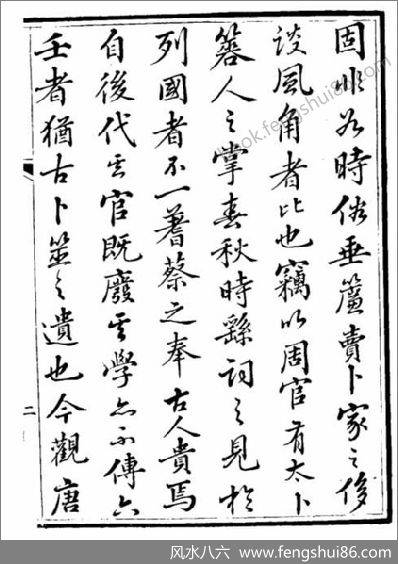 固非若時俗垂簾賣卜家之侈
談風角者比也竊以周官有太卜
簭人之掌春秋時繇詞之見於
列國者不一蓍蔡之奉古人貴焉
自後代其官既廢其學亦不傳六
壬者猶古卜筮之遺也今觀唐
二
book.fengshui86.com
风水八六 www.fengshui86.com